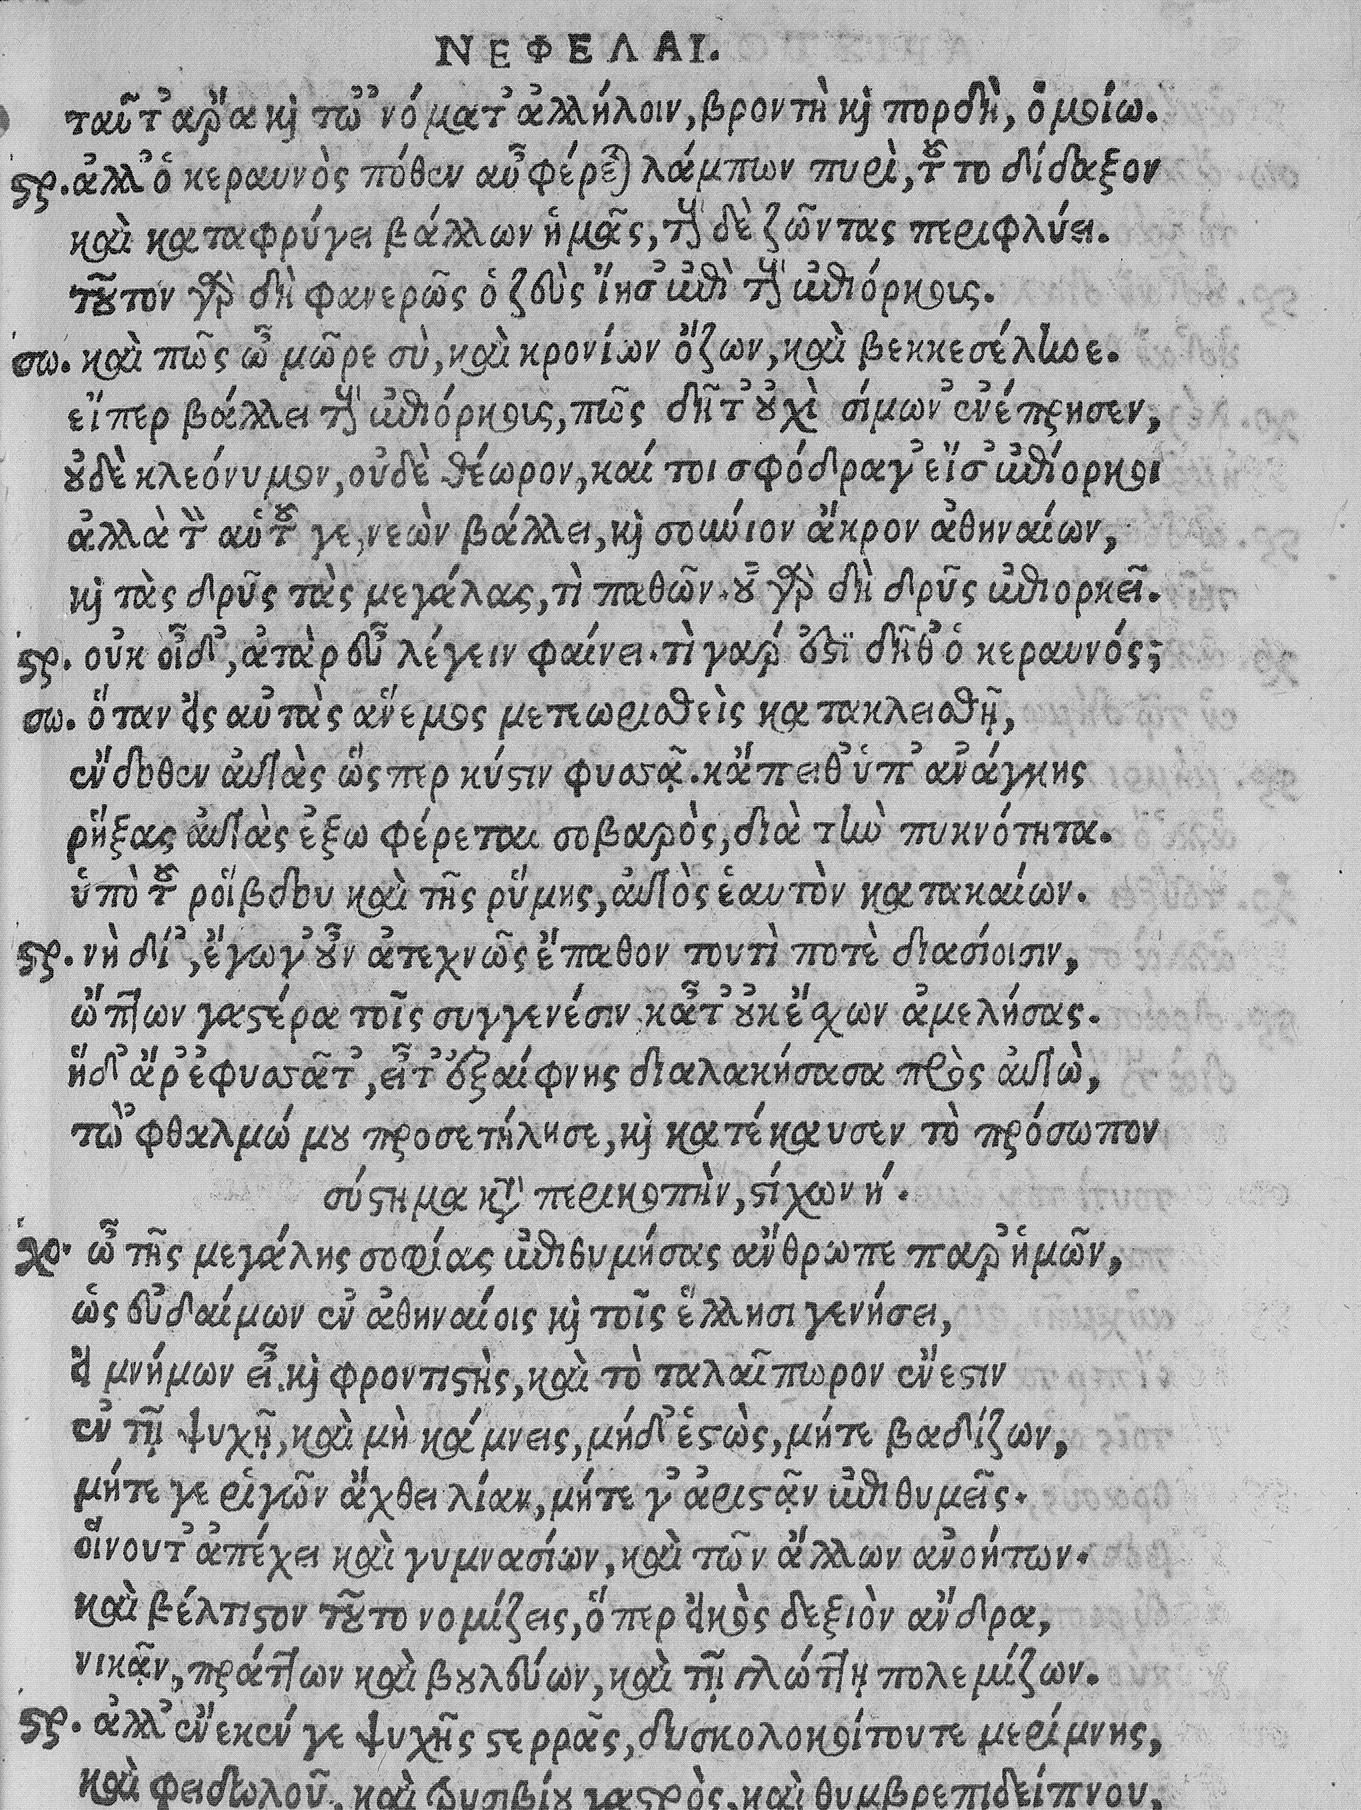 ΝΕΦΕΛΑΙ.
ταῦτ' ἄρα καὶ τὠνόματ' ἀλλήλοιν, βροντὴ καὶ πορδὴ, ὁμοίω.
ςρ. ἀλλ' ὁ κεραυνὸς πόθεν αὖ φέρεται λάμπων πυρὶ, τοῦτο δίδαξον
καὶ καταφρύγει βάλλων ἡμᾶς, τοὺς δὲ ζῶντας περιφλύει.
τοῦτον γὰρ δὴ φανερῶς ὁ ζεὺς ἵησ' ἐπὶ τοὺς ἐπιόρκους.
σω. καὶ πῶς ὦ μῶρε σὺ, καὶ κρονίων ὄζων, καὶ βεκκεσέληνε.
εἴπερ βάλλει τοὺς ἐπιόρκους, πῶς δῆτ' οὐχὶ σίμων' ἐνέπρησεν,
οὐδὲ κλεόνυμον, οὐδὲ θέωρον, καί τοι σφόδρα γ' εἴσ' ἐπίορκοι
ἀλλὰ τὸν αὑτοῦ γε, νεὼν βάλλει, καὶ σούνιον ἄκρον ἀθηναίων,
καὶ τὰς δρῦς τὰς μεγάλας, τὶ παθῶν. οὐ γὰρ δὴ δρῦς ἐπιορκεῖ.
ςρ. οὐκ οἶδ', ἀτὰρ εὖ λέγειν φαίνει. τὶ γαρ ἐστὶ δῆθ' ὁ κεραυνός;
σω. ὅταν εἰς αὐτὰς ἄνεμος μετεωρισθεὶς κατακλεισθῇ,
ἔνδοθεν αὐτὰς ὥςπερ κύστιν φυσᾷ. κἄπειθ' ὑπ' ἀνάγκης
ῥήξας αὐτὰς ἔξω φέρεται σοβαρὸς, διὰ τὴν πυκνότητα.
ὑπὸ τοῦ ῥοίβδου καὶ τῆς ῥύμης, αὐτὸς ἑαυτὸν κατακαίων.
ςρ. νὴ δί', ἔγωγ' οὖν ἀτεχνῶς ἔπαθον τουτὶ ποτὲ διασίοισιν,
ὤπτων γαστέρα τοῖς συγγενέσιν κᾆτ' οὐκ ἔσχων ἀμελήσας.
ἥδ' ἄρ' ἐφυσᾶτ', εἶτ' ἐξαίφνης διαλακήσασα πρὸς αὐτὼ,
τὠφθαλμώ μου προσετήλησε, καὶ κατέκαυσεν τὸ πρόσωπον
σύστημα κατὰ περικοπὴν, στίχων ή.
χο. ὦ τῆς μεγάλης σοφίας ἐπιθυμήσας ἄνθρωπε παρ' ἡμῶν,
ὡς εὐδαίμων ἐν ἀθηναίοις καὶ τοῖς ἕλλησι γενήσει,
εἰ μνήμων εἶ. καὶ φροντιστὴς, καὶ τὸ ταλαῖπωρον ἔνεστιν
ἐν τῇ ψυχῇ, καὶ μὴ κάμνεις, μήδ' ἑστὼς, μήτε βαδίζων,
μήτε γε ῥιγῶν ἄχθει λίαν, μήτε γ' ἀριστᾷν ἐπιθυμεῖς.
οἴνου τ' ἀπέχει καὶ γυμνασίων, καὶ τῶν ἄλλων ἀνοήτων.
καὶ βέλτιστον τοῦτο νομίζεις, ὅπερ εἰκὸς δεξιὸν ἄνδρα,
νικᾷν, πράττων καὶ βουλεύων, καὶ τῇ γλώττῃ πολεμίζων.
ςρ. ἀλλ' ἕνεκέν γε ψυχῆς στερρᾶς, δυσκολοκοίτου τε μερίμνης,
καὶ φειδωλοῦ, καὶ τρυσιβίου γαστρὸς, καὶ θυμβρεπιδείπνου,